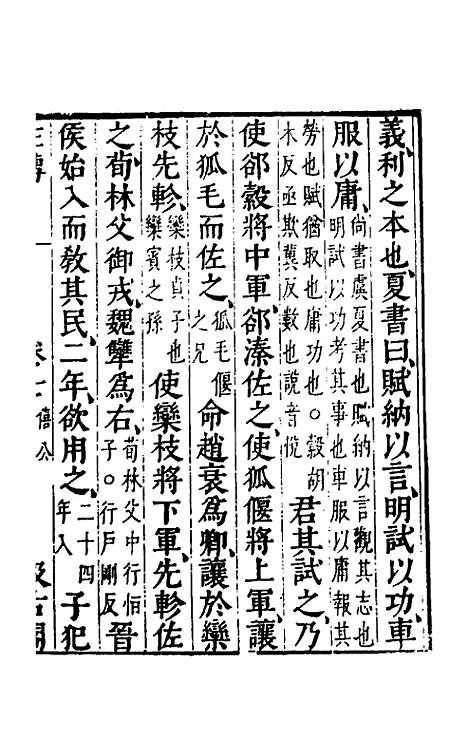 義利之本也夏書曰賦納以言明試以功車
服以庸尚書虞夏書也賦納以言觀其志也明試以功考其事也車服以庸報其
勞也賦猶取也庸功也○縠胡木反亟欺冀反數也說音悅君其試之乃
使郤縠將中軍郤溱佐之使狐偃將上軍讓
於狐毛而佐之狐毛偃之兄命趙衰為卿讓於欒
枝先軫欒枝貞子也欒賓之孫使欒枝將下軍先軫佐
之荀林父御戎魏犨為右荀林父中行桓子○行戶剛反晉
侯始入而教其民二年欲用之二十四年入子犯
左傳 卷七 僖公 汲古閣